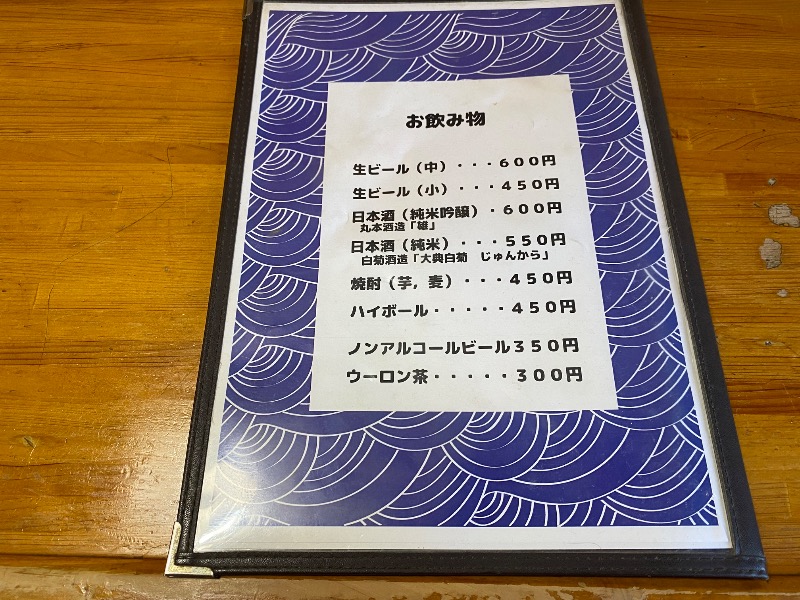 お飲み物
生ビール（中）・・・６００円
生ビール（小）・・・４５０円
日本酒（純米吟醸）・６００円
丸本酒造「雄」
日本酒（純米）・・・５５０円
白菊酒造「大典白菊　じゅんから」
焼酎（芋，麦）・・・４５０円
ハイボール・・・・・４５０円
ノンアルコールビール３５０円
ウーロン茶・・・・・３００円